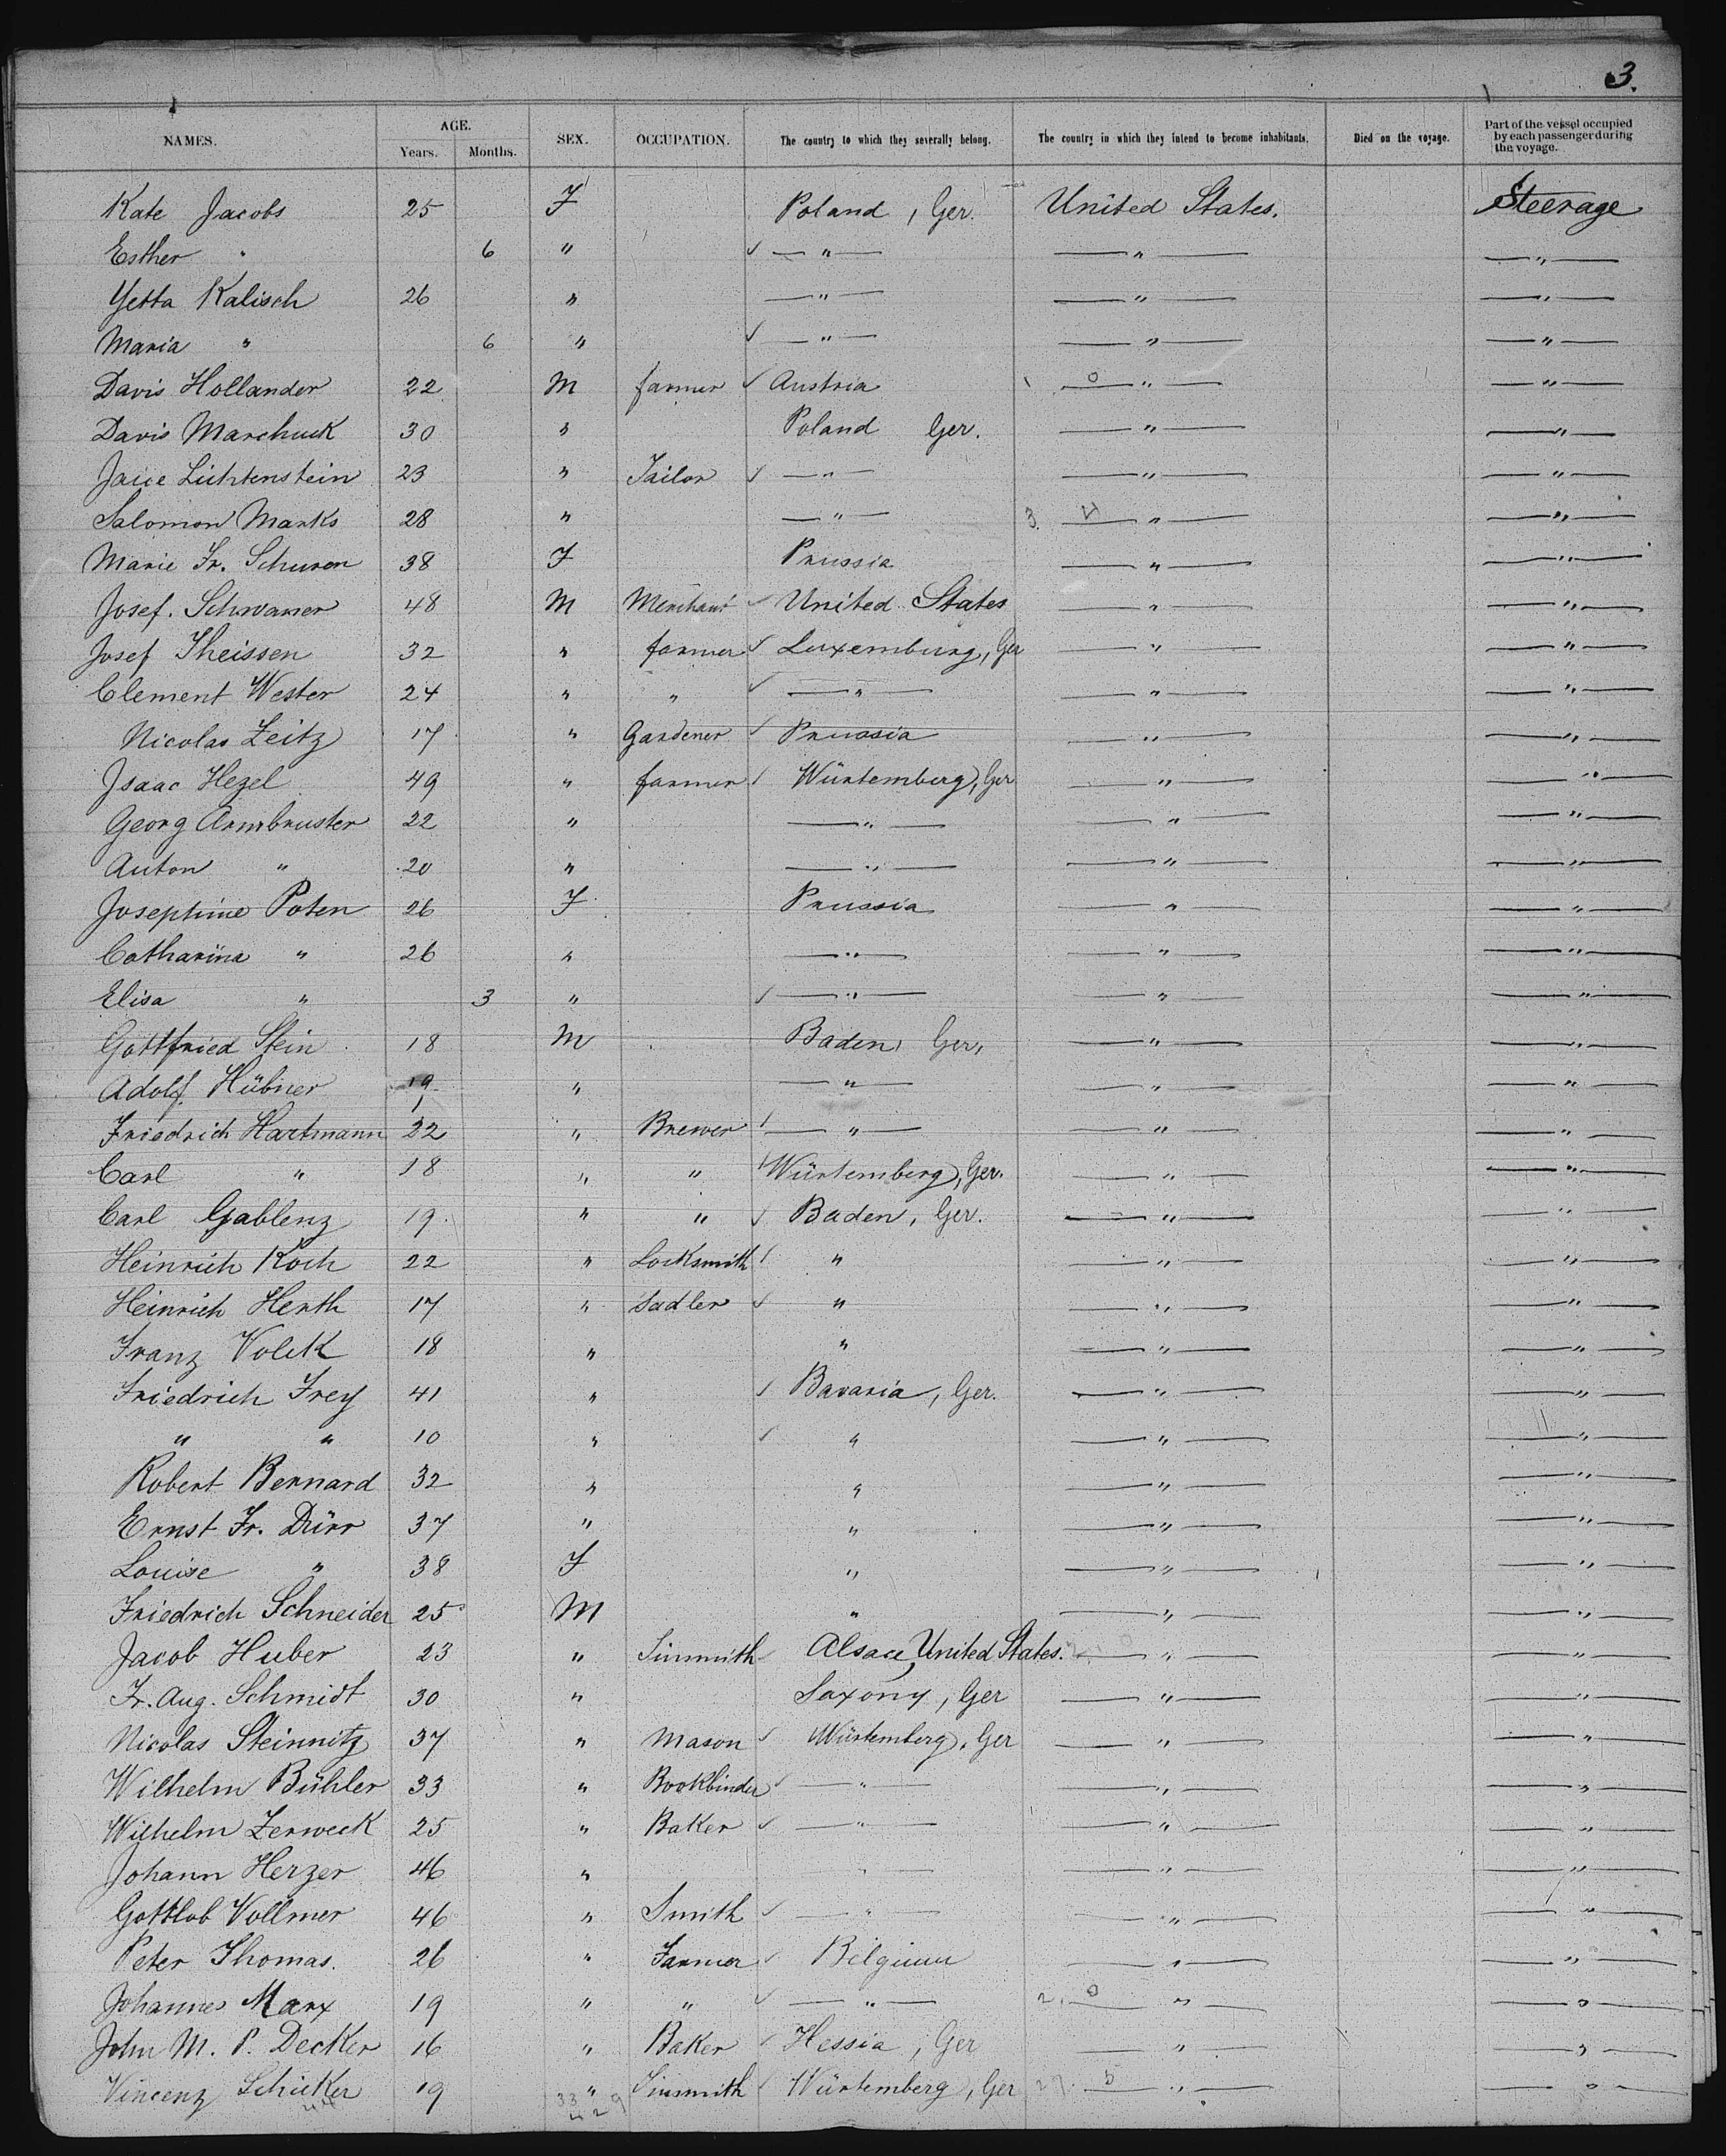 3.
NAMES. AGE. Years. Months. SEX. OCCUPATION. The country to which they severally belong. The country in which they intend to become inhabitants. Died on the voyage. Part of the vessel occupied by each passenger during the voyage.
Kate Jacobs 25 F Poland, Ger. United States. Steerage
Esther " 6 " " " "
Yetta Kalisch 26 " " " "
Maria " 6 " " " "
Davis Hollander 22 M farmer Austria 1 0 " "
Davis Marchuck 30 " Poland Ger. " "
Lichtenstein 23 " Tailor " " "
Salomon Marks 28 " " 3. 4 " "
Marie Fr. Schuren 38 F Prussia " "
Josef. Schwaner 48 M Merchant United States " "
Josef Theissen 32 " farmer Luxemburg, Ger " "
Clement Wester 24 " " " " "
Nicolas Zeitz 17 " Gardener Prussia " "
Isaac Hezel 49 " farmer Würtemberg, Ger " "
Georg Armbruster 22 " " " "
Anton " 20 " " " "
Josephine Poten 26 F Prussia " "
Catharina " 26 " " " "
Elisa " 3 " " " "
Gottfried Stein 18 M Baden, Ger, " "
Adolf. Hübner 19 " " " "
Friedrich Hartmann 22 " Brewer " " "
Carl " 18 " " Würtemberg, Ger. " "
Carl Gablenz 19 " " Baden, Ger. " "
Heinrich Koch 22 " Locksmith " " "
Heinrich Herth 17 " Sadler " " "
Franz Volck 18 " " " "
Friedrich Frey 41 " Bavaria, Ger. " "
" " 10 " " " "
Robert Bernard 32 " " " "
Ernst Fr. Dürr 37 " " " "
Louise " 38 F " " "
Friedrich Schneider 25 M " " "
Jacob Huber 23 " Tinsmith Alsace, United States. " "
Fr. Aug. Schmidt 30 " Saxony, Ger " "
Nicolas Steinmitz 37 " Mason Würtemberg, Ger " "
Wilhelm Bühler 33 " Bookbinder " " "
Wilhelm Zerweck 25 " Baker " " "
Johann Herzer 46 " " " "
Gottlob Vollmer 46 " Smith " " "
Peter Thomas. 26 " Farmer Belgium " "
Johannes Marx 19 " " " 2. 0 " "
John M. P. Decker 16 " Baker Hessia, Ger " "
Vincenz Schicker 19 " Tinsmith Würtemberg, Ger 29. 5 " "
44 33 429